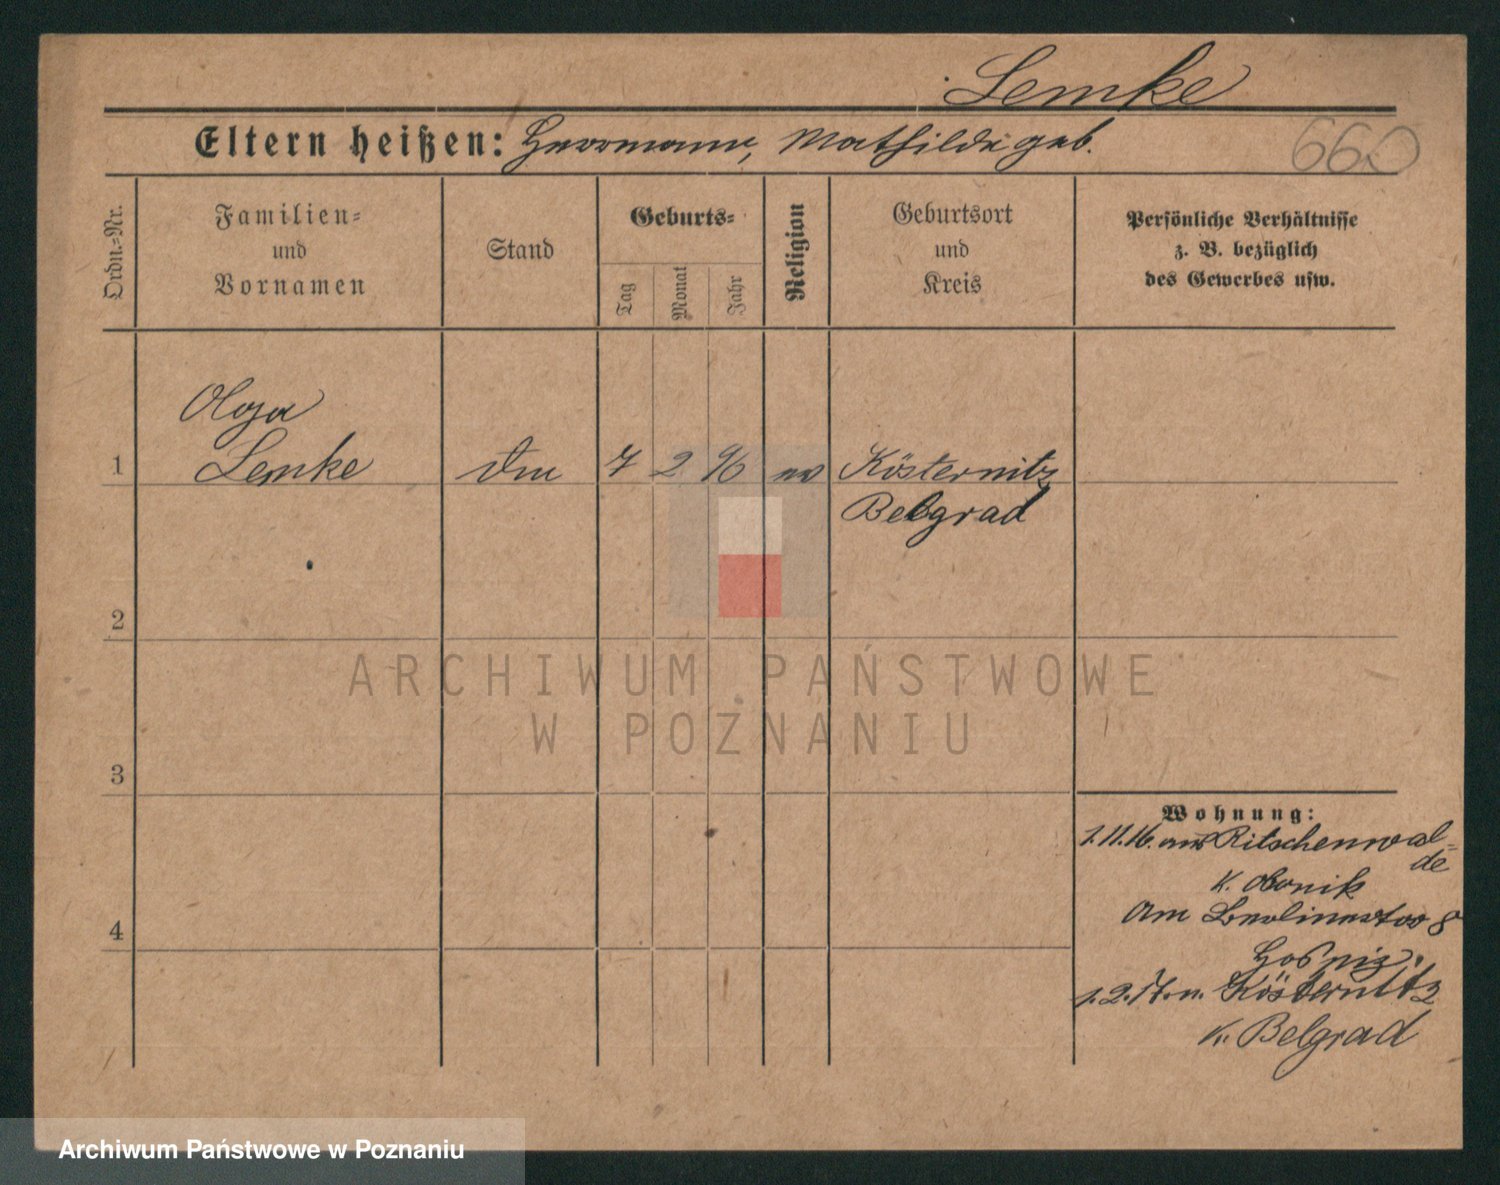 Lemke
Eltern heißen: Herrmann, Mathilde geb.
660
Ordn.=Nr.
Familien=
und
Vornamen
Stand
Geburts=
Tag
Monat
Jahr
Religion
Geburtsort
und
Kreis
Persönliche Verhältnisse
z. B. bezüglich
des Gewerbes usw.
Olga
1 Lemke 7 2 96 ev Kösternitz
Belgrad
2
ARCHIWUM PAŃSTWOWE
W POZNANIU
3
Wohnung:
1.11.16. aus Ritschenwal=
de
K. Obornik
4
Am Berlinertor 8
Hospiz.
1.2.17. n. Kösternitz
K. Belgrad
Archiwum Państwowe w Poznaniu